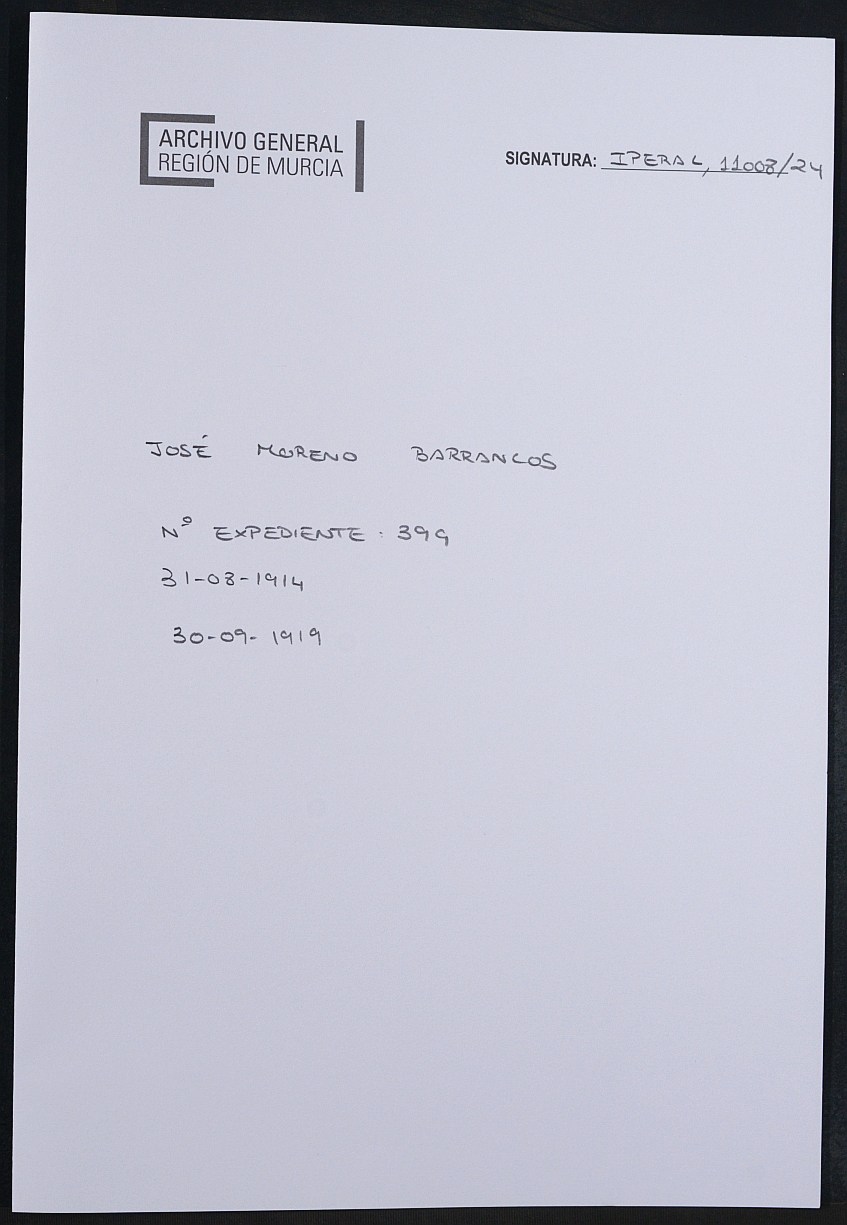 ARCHIVO GENERAL
REGIÓN DE MURCIA
SIGNATURA: IPERAL, 11008/24
JOSÉ MORENO BARRANCOS
Nº EXPEDIENTE: 399
31-08-1914
30-09-1919